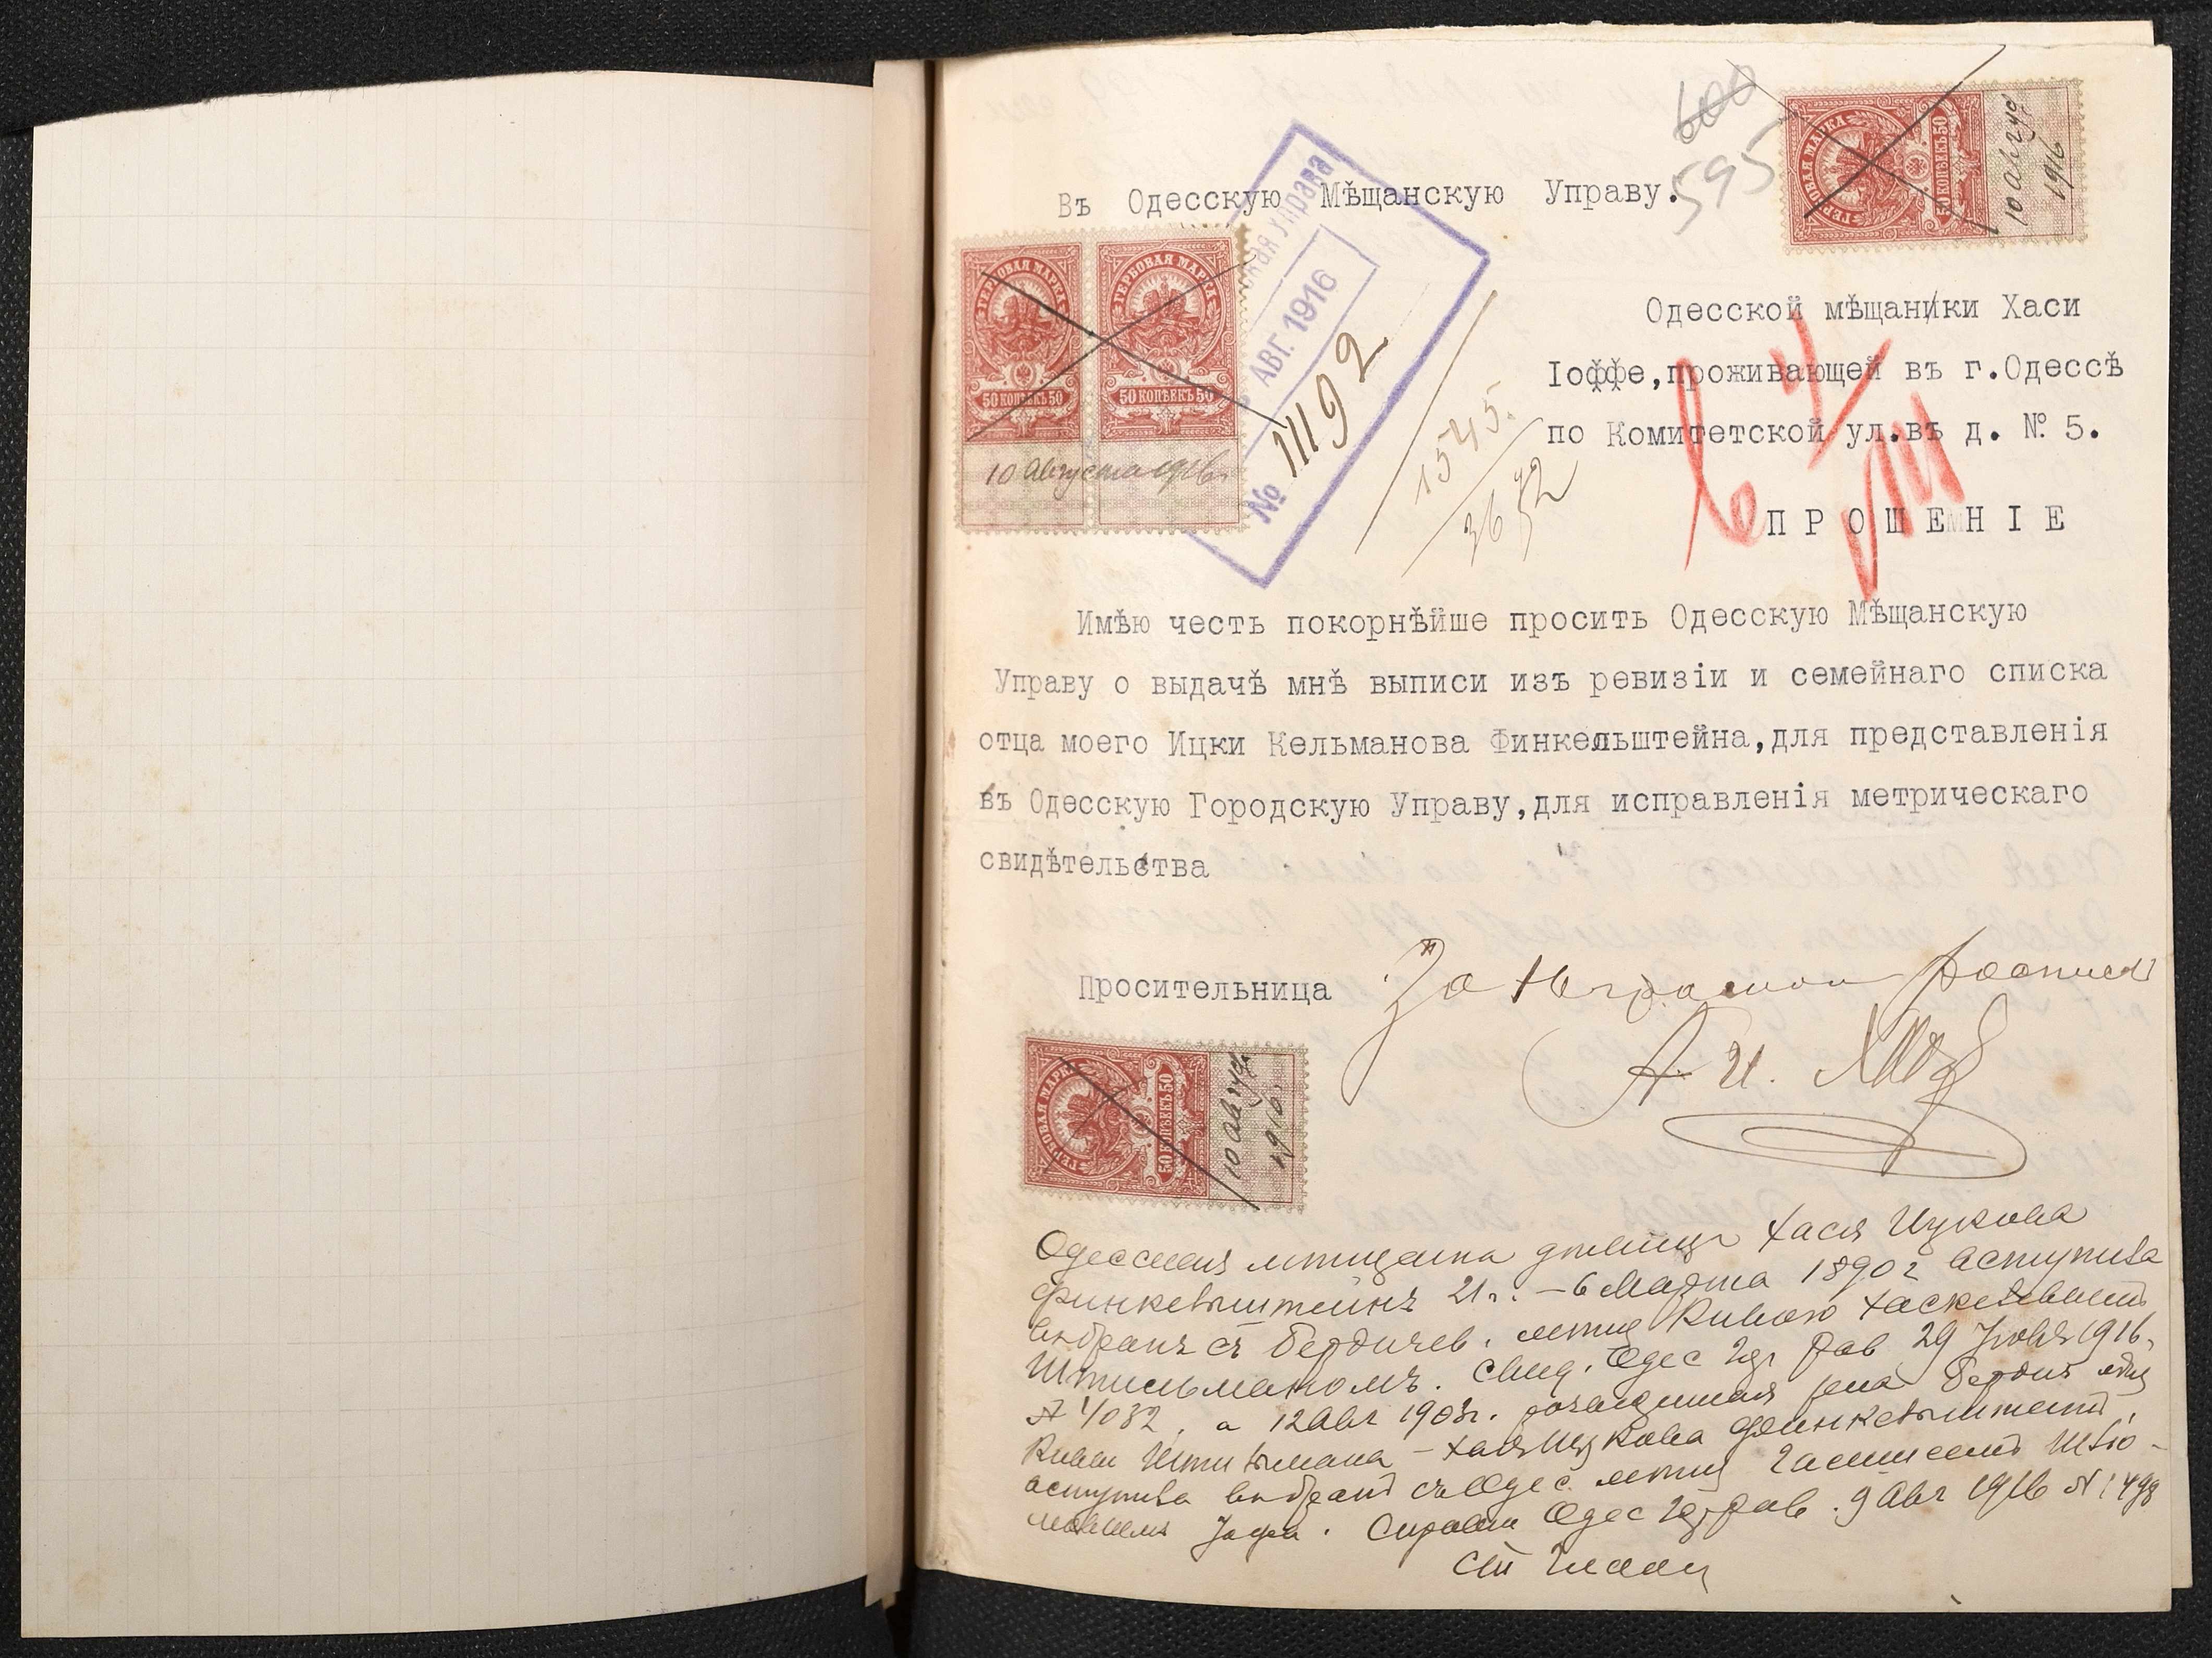 600
595
Въ Одесскую Мѣщанскую Управу.
ГЕРБОВАЯ МАРКА
50 КОПѢЕКЪ 50
10 Авгу
1916
ГЕРБОВАЯ МАРКА
50 КОПѢЕКЪ 50
ГЕРБОВАЯ МАРКА
50 КОПѢЕКЪ 50
10 Августа 1916г
Управа
АВГ. 1916
№ 11192
1545.
3652
Одесской мѣщанки Хаси
Іоффе,проживающей въ г.Одессѣ
по Комитетской ул.въ д. № 5.
ПРОШЕНІЕ
Имѣю честь покорнѣйше просить Одесскую Мѣщанскую
Управу о выдачѣ мнѣ выписи изъ ревизіи и семейнаго списка
отца моего Ицки Кельманова Финкельштейна,для представленія
въ Одесскую Городскую Управу,для исправленія метрическаго
свидѣтельства
Просительница За неграмотн
А. И.
ГЕРБОВАЯ МАРКА
50 КОПѢЕКЪ 50
10 Авгу
1916
Одесская мѣщанка дѣвица Хася Ицкова
Финкельштейнъ 21 г. – 6 Марта 1890 г вступила
въ бракъ съ Бердичев. мѣщ
Штильманомъ. Свид. Одес Рав 29 1916
12 Авг 1903г. жена Бердич мѣщ
Штильмана – Хася Ицкова Финкельштейнъ
вступила въ бракъ съ Одес. мѣщ
Справка Одес Рав. 9 Авг 1916 № 1498